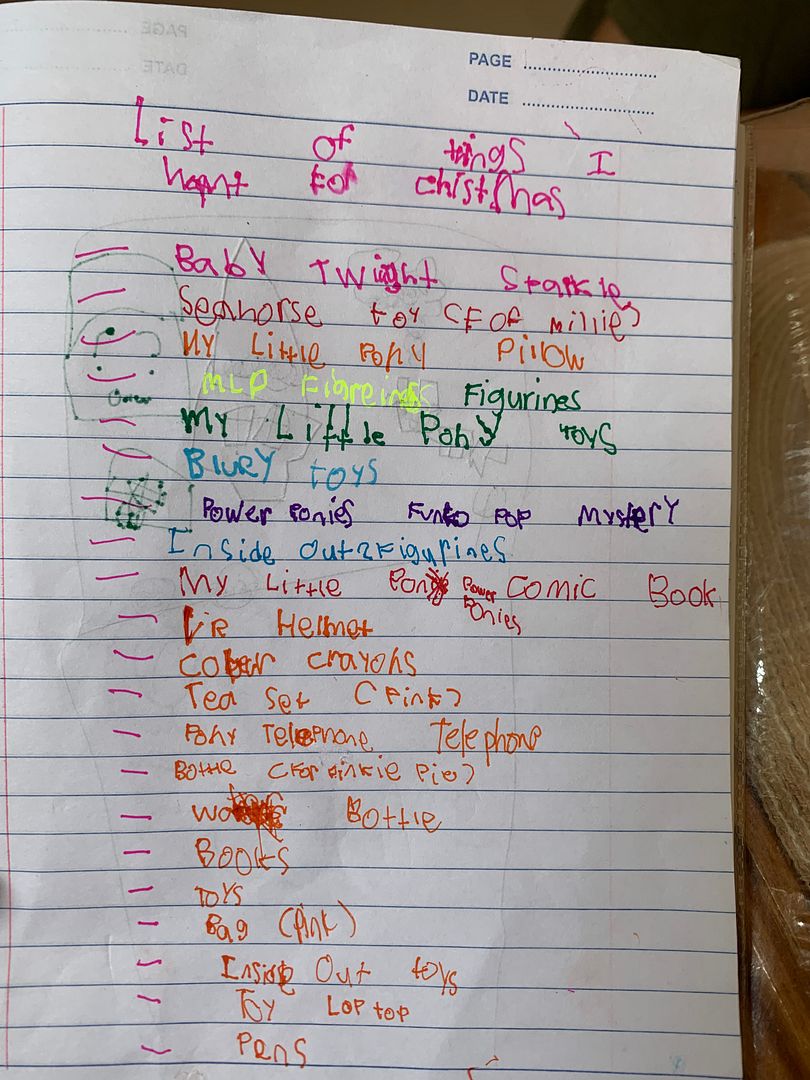 PAGE
DATE
PAGE
DATE
List of tings I
want for chistmas
Baby Twight Sparkle
Seahorse toy (For millie)
My Little Pony Pillow
MLP Figreings Figurines
My Little Pony toys
Bluey toys
Power Ponies Funko Pop Mystery
Inside Out 2 Figurines
My Little Pony Power Ponies Comic Book
VR Helmet
Colour crayons
Tea Set (Pink)
Pony Telephone Telephone
Bottle (For Pinkie Pie)
Bottle
Books
Toys
Bag (Pink)
Inside Out toys
Toy Loptop
Pens